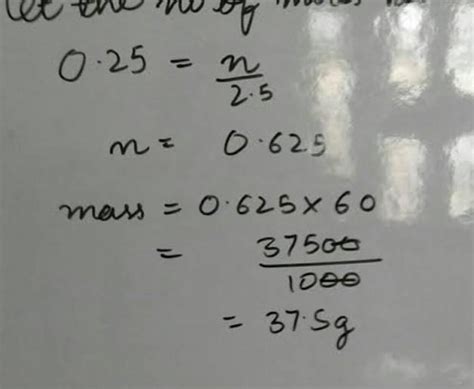 let the no of moles
0.25 = n/2.5
n = 0.625
mass = 0.625 × 60
= 37500/1000
= 37.5g